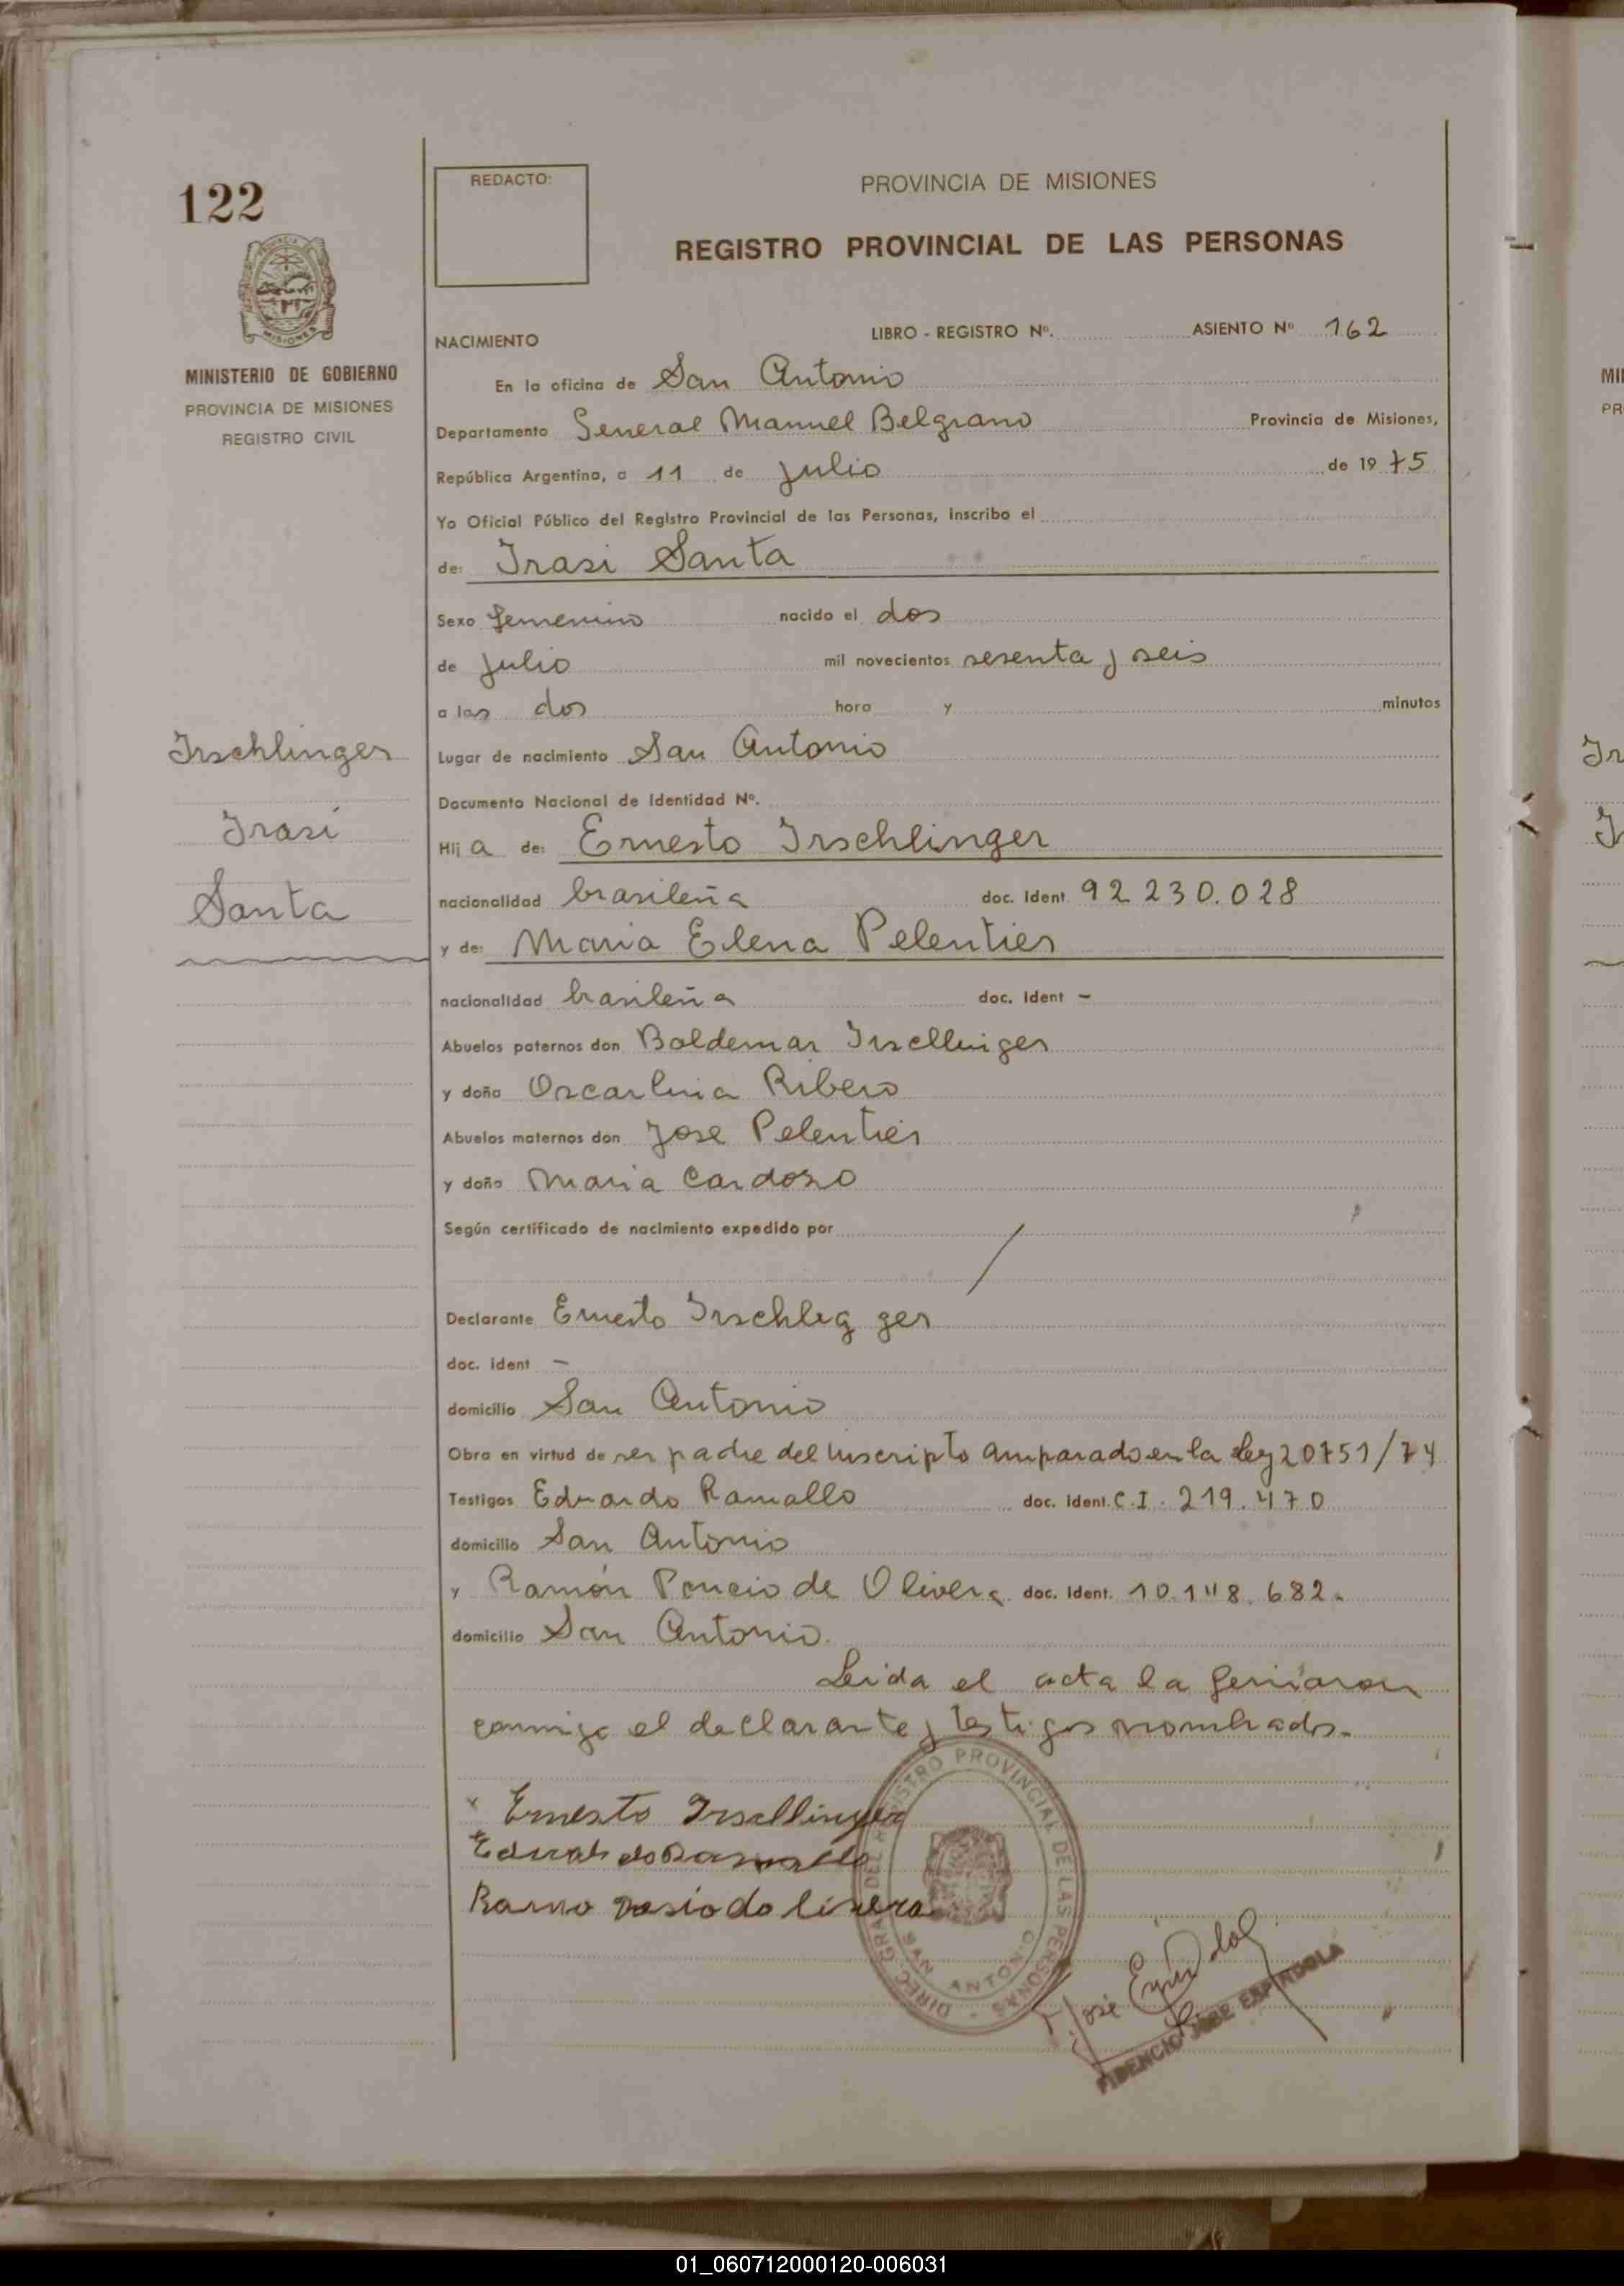 122
REDACTO:
PROVINCIA DE MISIONES
REGISTRO PROVINCIAL DE LAS PERSONAS
MINISTERIO DE GOBIERNO
PROVINCIA DE MISIONES
REGISTRO CIVIL
NACIMIENTO LIBRO - REGISTRO Nº. ASIENTO Nº 162
En la oficina de San Antonio
Departamento General Manuel Belgrano Provincia de Misiones,
República Argentina, a 11 de Julio de 19 75
Yo Oficial Público del Registro Provincial de las Personas, inscribo el
de: Irasi Santa
Sexo femenino nacido el dos
de Julio mil novecientos sesenta y seis
a las dos hora y minutos
Irschlinger
Irasi
Santa
Lugar de nacimiento San Antonio
Documento Nacional de Identidad Nº.
Hij a de: Ernesto Irschlinger
nacionalidad brasileña doc. Ident 92 230.028
y de: Maria Elena Pelentier
nacionalidad brasileña doc. Ident -
Abuelos paternos don Boldemar Irsellinger
y doña Oscarlina Ribero
Abuelos maternos don Jose Pelentier
y doña Maria Cardozo
Según certificado de nacimiento expedido por
Declarante Ernesto Irschlig ger
doc. ident -
domicilio San Antonio
Obra en virtud de ser padre del inscripto amparado en la ley 20751/74
Testigos Eduardo Ramallo doc. ident. C.I. 219.470
domicilio San Antonio
y Ramón Poncio de Olivera doc. ident. 10.148.682.
domicilio San Antonio.
Leida el acta la firmaron
conmigo el declarante y testigos nombrados.
x Ernesto Irsellinger
Eduardo Ramallo
DIREC. GRAL. DEL REGISTRO PROVINCIAL DE LAS PERSONAS
SAN ANTONIO
FIDENCIO JOSE ESPINDOLA
01_060712000120-006031